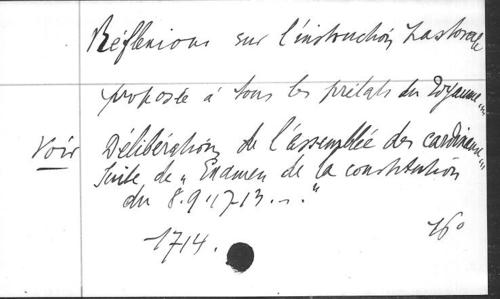 Réflexions sur l'instruction pastorale
proposée à tous les prélats du Royaume...
Voir Délibération de l'assemblée des cardinaux,,
Suite de „Examen de la constitution
du 8.9.1713...."
1714. 16°